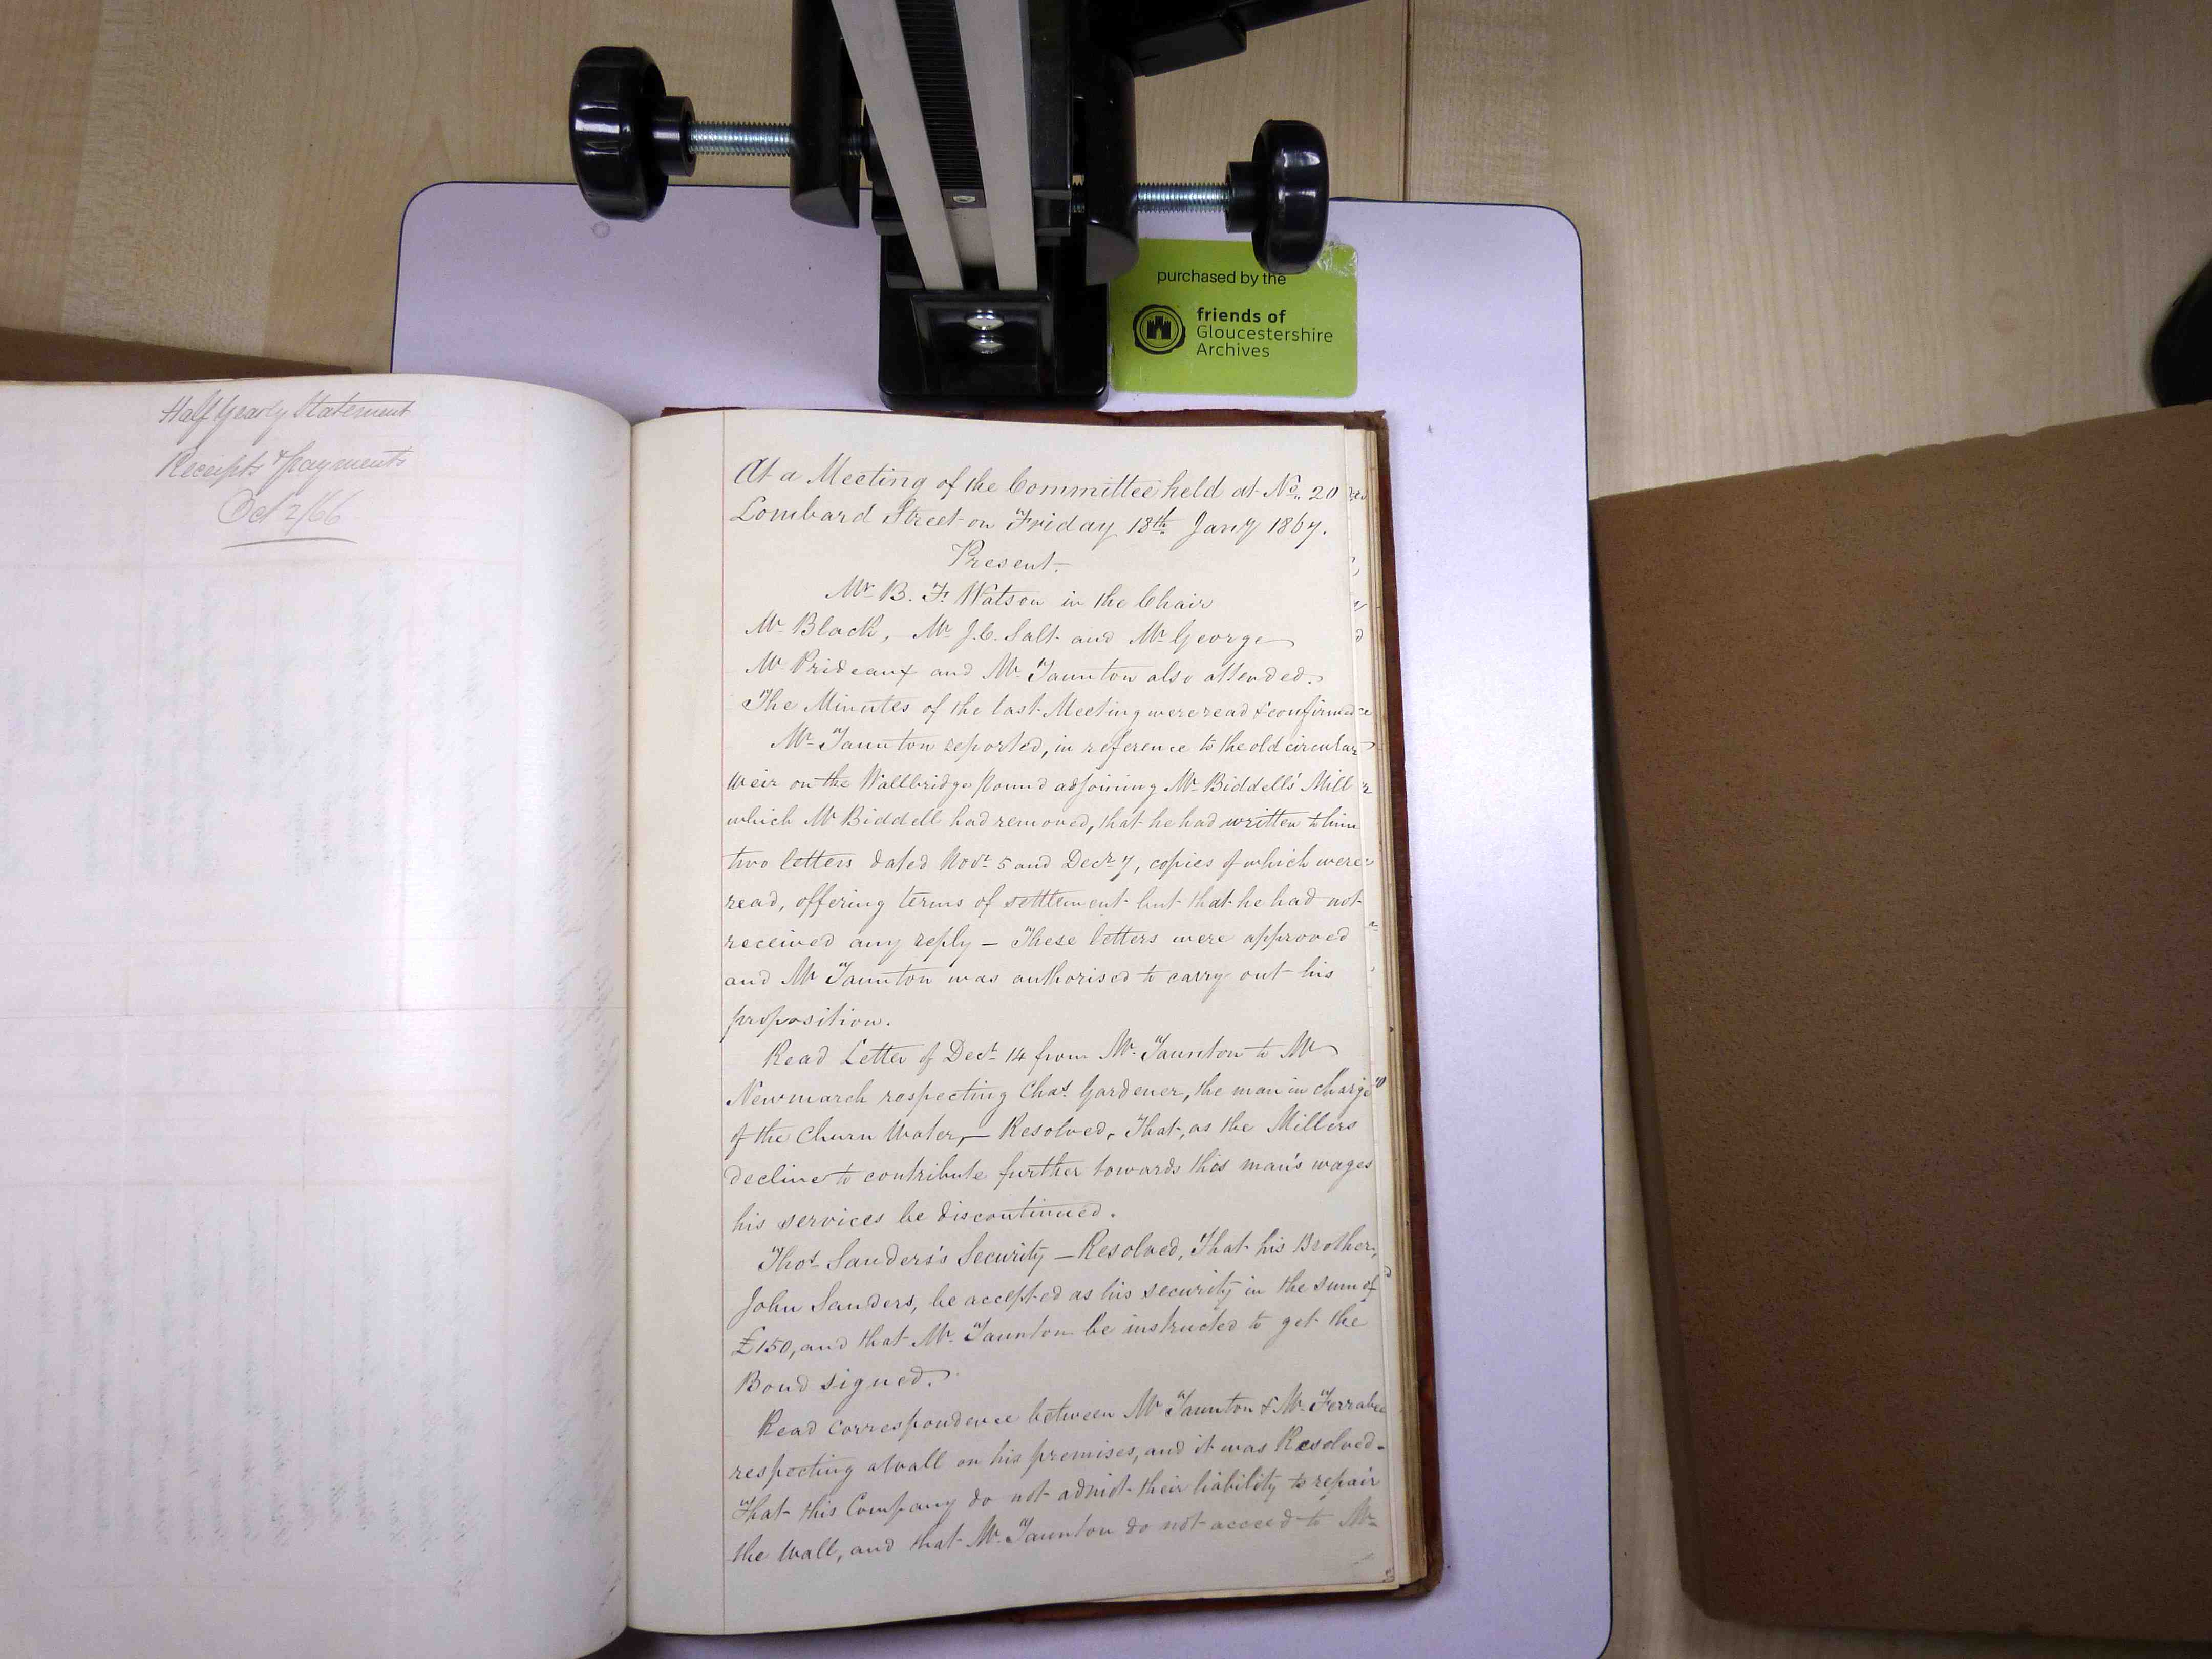 purchased by the
friends of
Gloucestershire
Archives
Half Yearly Statement
Receipts & payments
Oct 2/66
At a Meeting of the Committee held at No. 20
Lombard Street on Friday 18th Jany 1867.
Present.
Mr B. F. Watson in the Chair
Mr Black, Mr J.C. Salt and Mr George
Mr Prideaux and Mr Taunton also attended.
The Minutes of the last Meeting were read & confirmed
Mr Taunton reported, in reference to the old circular
weir on the Wallbridge Pound adjoining Mr Biddell's Mill
which Mr Biddell had removed, that he had written to him
two letters dated Novr 5 and Decr 7, copies of which were
read, offering terms of settlement but that he had not
received any reply — These letters were approved
and Mr Taunton was authorised to carry out his
proposition.
Read Letter of Decr 14 from Mr Taunton to Mr
Newmarch respecting Chas Gardener, the man in charge
of the Churn Water, — Resolved, That, as the Millers
decline to contribute further towards this man's wages
his services be discontinued.
Thos Sanders's Security — Resolved, That his Brother,
John Sanders, be accepted as his security in the sum of
£150, and that Mr Taunton be instructed to get the
Bond signed.
Read correspondence between Mr Taunton & Mr Ferrabee
respecting a wall on his premises, and it was Resolved-
That this Company do not admit their liability to repair
the wall, and that Mr Taunton do not accede to Mr